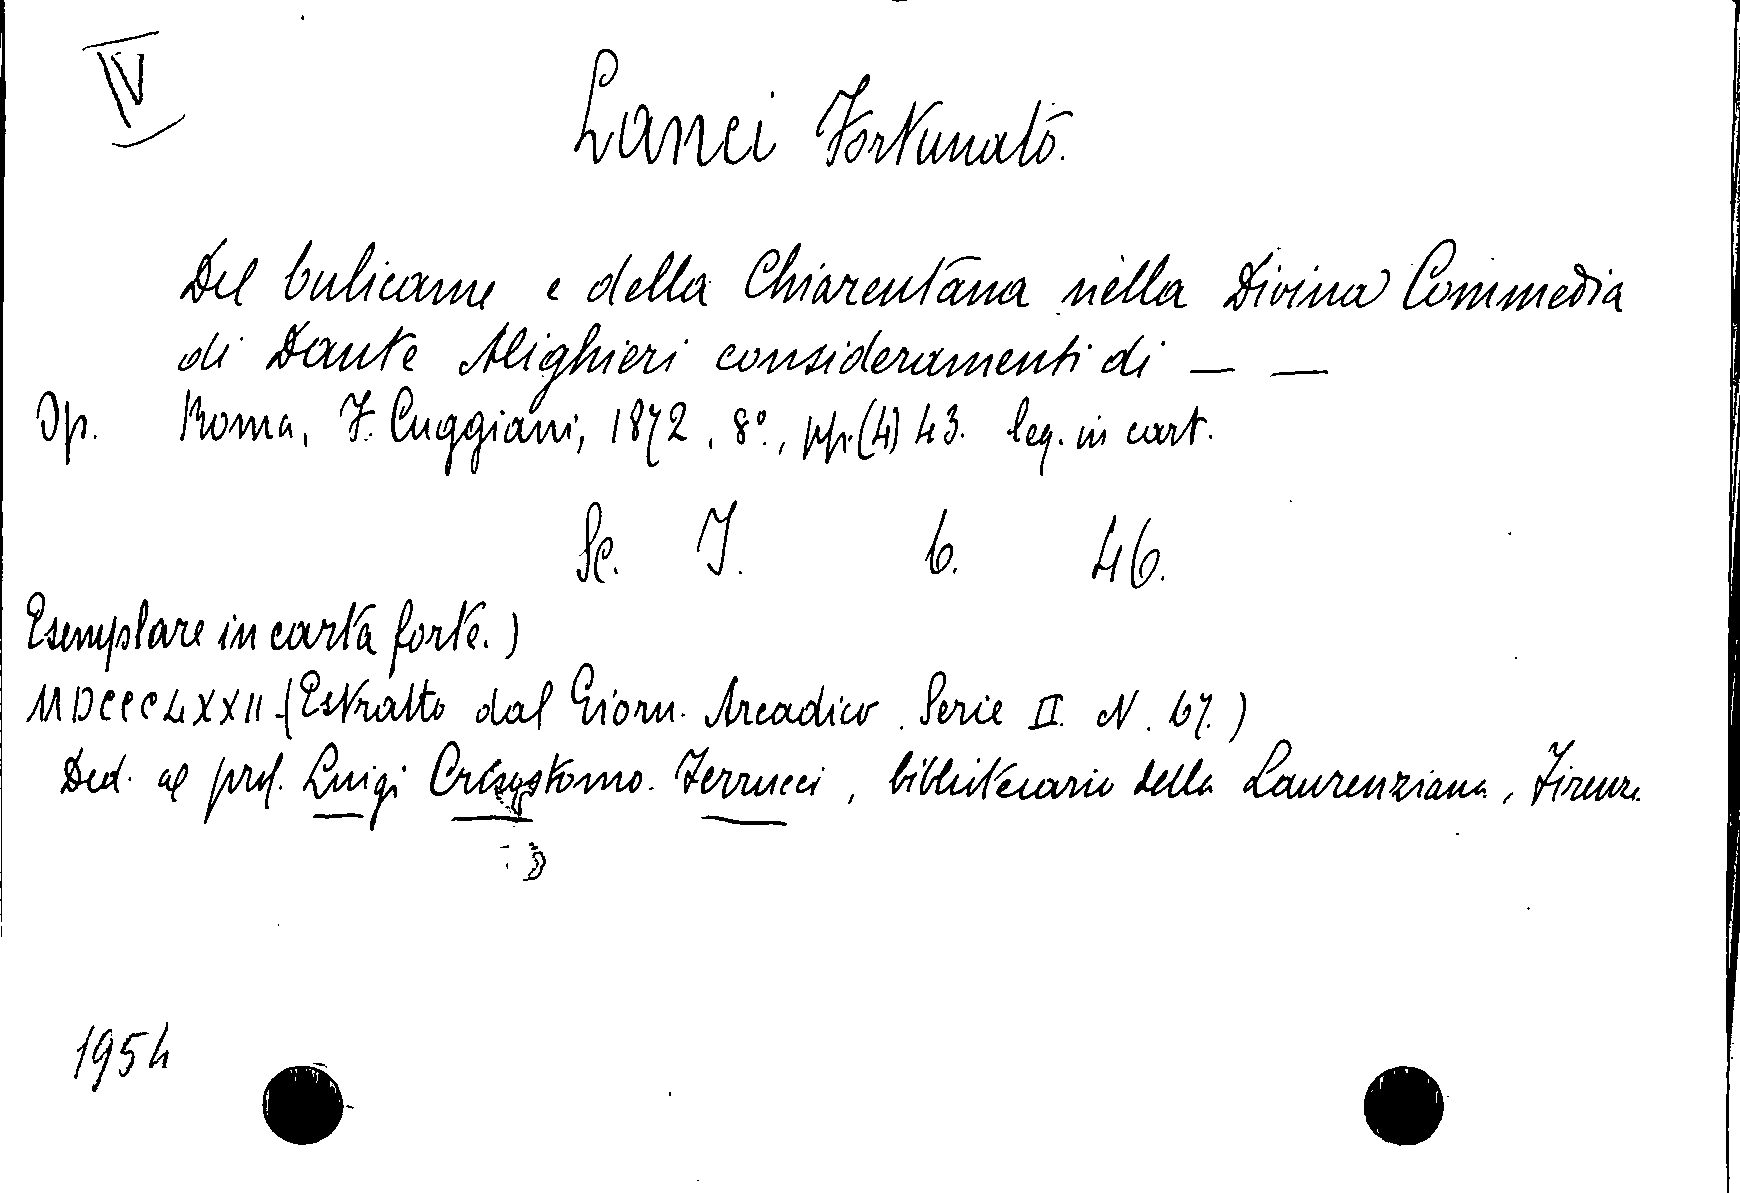 IV
Lanci Fortunato.
Del bulicame e della Chiarentana nella Divina Commedia
di Dante Alighieri consideramenti di — —
Op. Roma, F. Cuggiani, 1872, 8°., pp. (4) 43. leg. in cart.
Sc. I. 6. 46.
Esemplare in carta forte.)
MDCCCLXXII - (Estratto dal Giorn. Arcadico. Serie II. N. 67.)
Ded. al prof. Luigi Crisostomo. Ferrucci, bibliotecario della Laurenziana, Firenze
1954